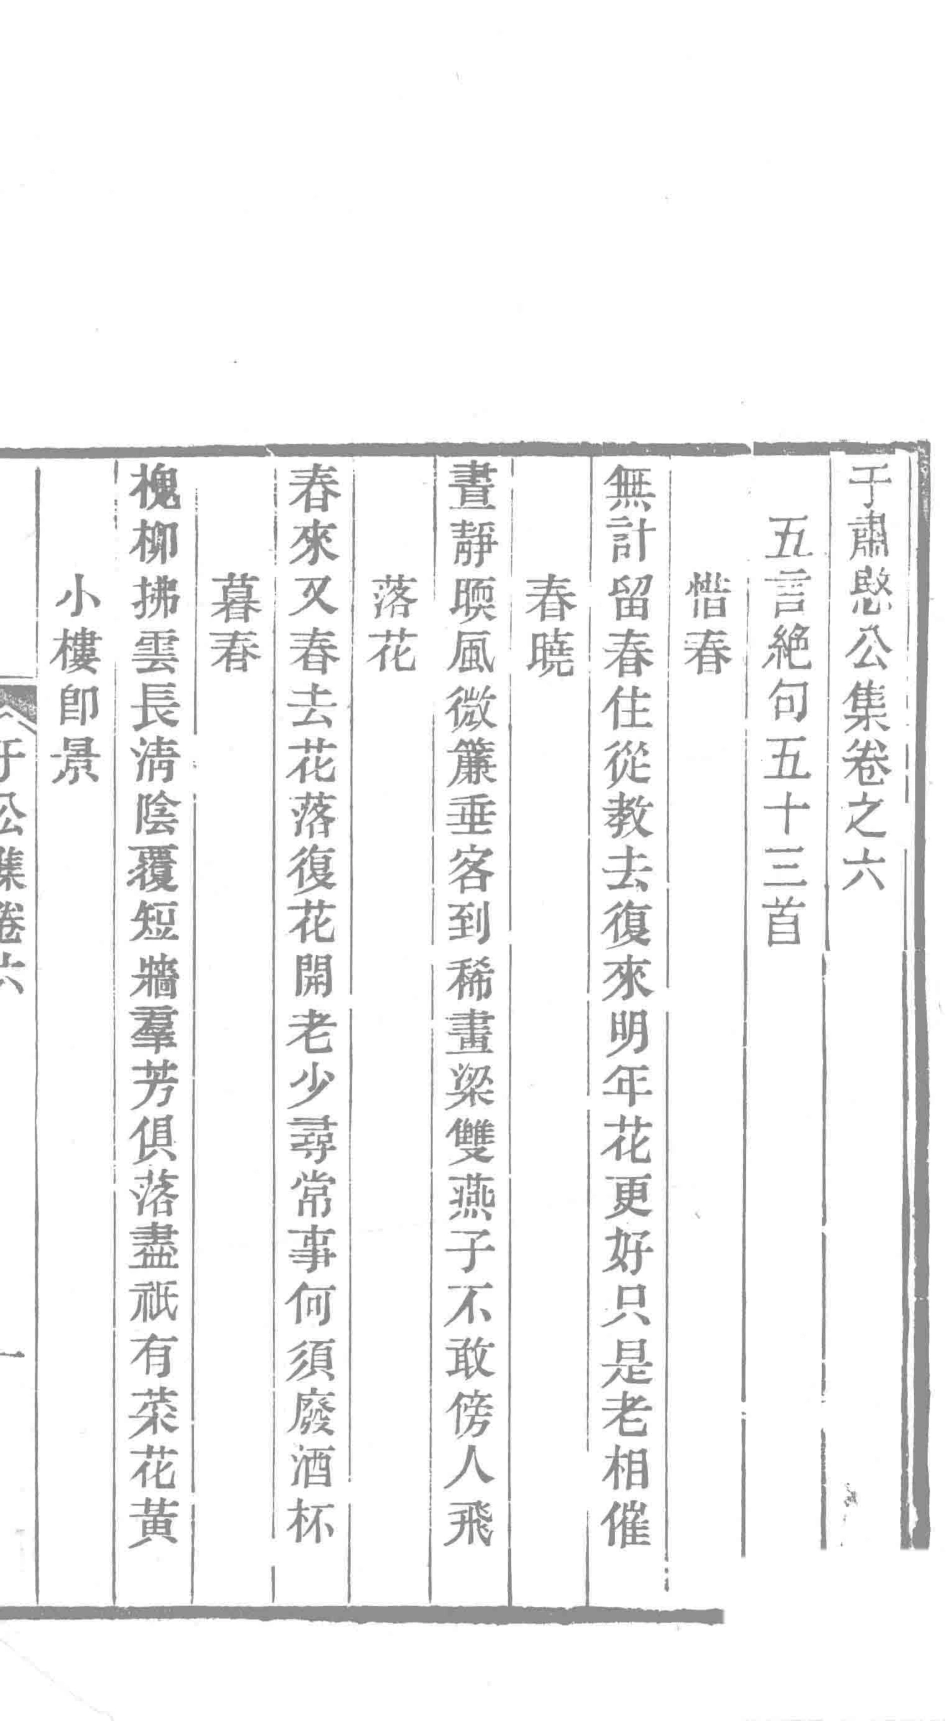 于肅愍公集卷之六
五言絶句五十三首
惜春
無計留春住從教去復來明年花更好只是老相催
春曉
晝靜暝風微簾垂客到稀畫梁雙燕子不敢傍人飛
落花
春來又春去花落復花開老少尋常事何須廢酒杯
暮春
槐柳拂雲長淸陰覆短牆羣芳俱落盡祇有菜花黃
小樓卽景
于公集卷六
一